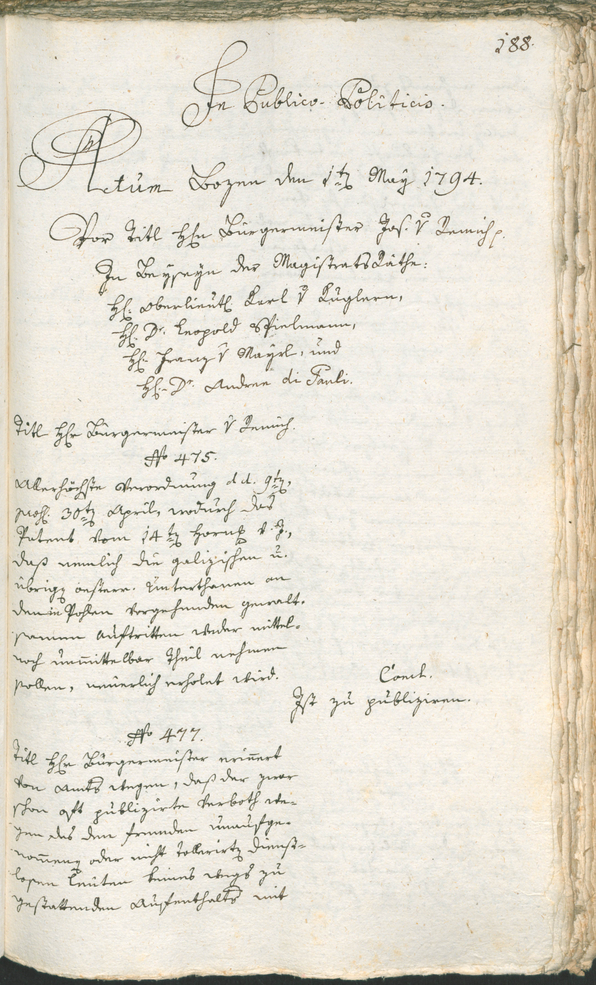 188.
In Publico-Politicis.
Actum Bozen den 1t May 1794.
Vor Titl Hln Bürgermeister Jos. v Remich p.
In Beyseyn der Magistrats Räthe:
Hl. Oberlieut Karl v Kuglern,
Hl. Dr. Leopold Spielmann,
Hl. Franz v Mayrl, und
Hl. Dr. Andree di Pauli.
Titl Hln Bürgermeister v Remich.
No 475.
Allerhöchste Verordnung d.d. 9t,
pres. 30t April, wodurch das
Patent vom 14t Hornung v. J.,
daß nemlich die galizischen u.
übrigen oesterr. Unterthanen an
den in Pohlen vorgehenden gewalt-
samen Auftritten weder mittel-
noch unmittelbar Theil nehmen
sollen, neuerlich erholet wird.
Concl.
Ist zu publiziren.
No 477.
Titl Hln Bürgermeister erinnert
von Amts wegen, daß der zwar
schon oft publizirte Verboth we-
gen des den fremden unaufge-
nommenen oder nicht tollerirten dienst-
losen Leuten keines wegs zu
gestattenden Aufenthalts mit